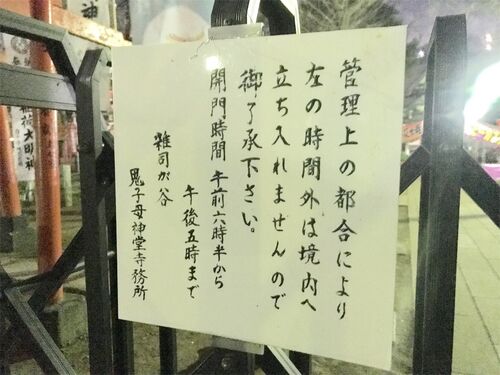 管理上の都合により
左の時間外は境内へ
立ち入れませんので
御了承下さい。
開門時間 午前六時半から
午後五時まで
雑司が谷
鬼子母神堂寺務所